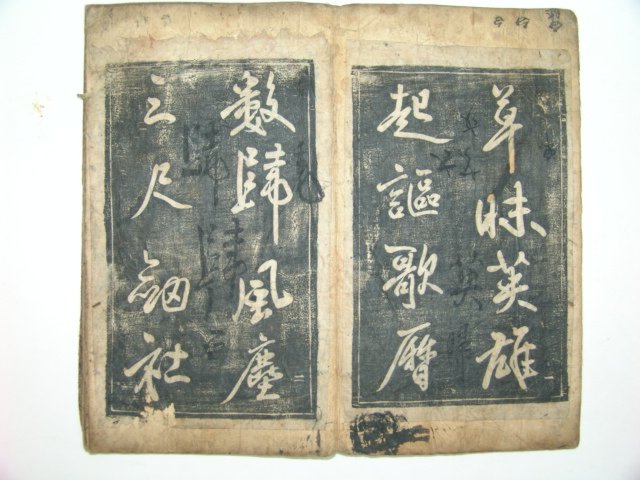 草昧英雄
起謳歌曆
数歸風塵
三尺劔社